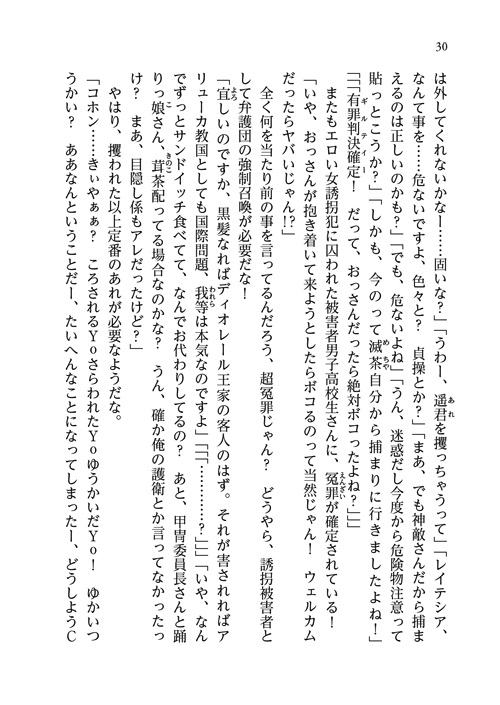 30
は外してくれないかなー……固いな？」「うわー、遥君を攫っちゃうって」「レイテシア、
なんて事を……危ないですよ、色々と？　貞操とか？」「まあ、でも神敵さんだから捕ま
えるのは正しいのかも？」「でも、危ないよね」「うん、迷惑だし今度から危険物注意って
貼っとこうか？」「しかも、今のって滅茶自分から捕まりに行きましたよね！」
「「「有罪判決確定！　だって、おっさんだったら絶対ボコったよね？」」」
またもエロい女誘拐犯に囚われた被害者男子高校生さんに、冤罪が確定されている！
「いや、おっさんが抱き着いて来ようとしたらボコるのって当然じゃん！　ウェルカム
だったらヤバいじゃん!?」
全く何を当たり前の事を言ってるんだろう、超冤罪じゃん？　どうやら、誘拐被害者と
して弁護団の強制召喚が必要だな！
「宜しいのですか、黒髪なればディオレール王家の客人のはず。それが害されればア
リューカ教国としても国際問題、我等は本気なのですよ」「「「…………？」」」「いや、なん
でずっとサンドイッチ食べてて、なんでお代わりしてるの？　あと、甲冑委員長さんと踊
りっ娘さん、茸茶配ってる場合なのかな？　うん、確か俺の護衛とか言ってなかったっ
け？　まあ、目隠し係もアレだったけど？」
やはり、攫われた以上定番のあれが必要なようだな。
「コホン……きぃやぁぁ？　ころされるＹｏさらわれたＹｏゆうかいだＹｏ！　ゆかいつ
うかい？　ああなんということだー、たいへんなことになってしまったー、どうしようＣ